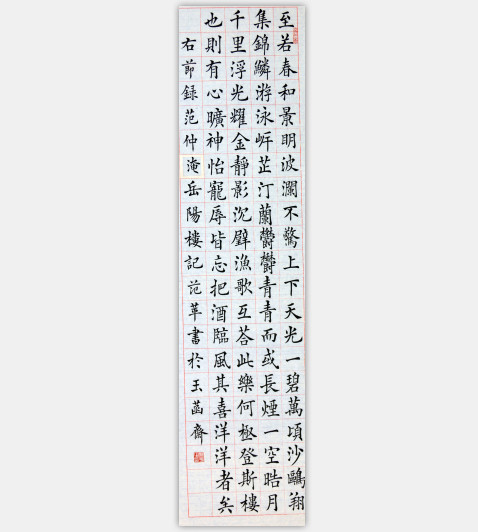 至若春和景明波瀾不驚上下天光一碧萬頃沙鷗翔
集錦鱗游泳岸芷汀蘭鬱鬱青青而或長煙一空晧月
千里浮光耀金靜影沉璧漁歌互荅此樂何極登斯樓
也則有心曠神怡寵辱皆忘把酒臨風其喜洋洋者矣
右節録范仲淹岳陽樓記范書於玉菡齋